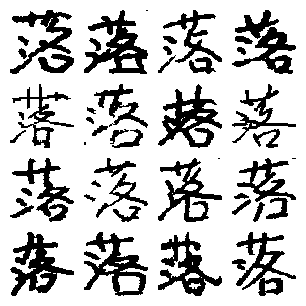 落落落落
落落落落
落落落落
落落落落